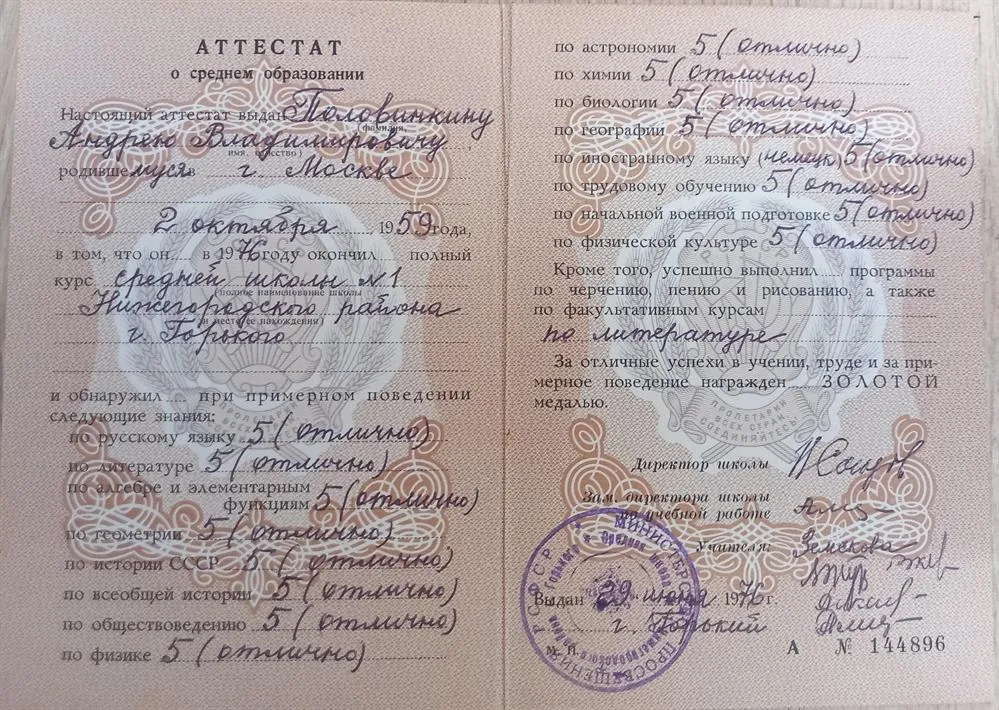 АТТЕСТАТ
о среднем образовании
Настоящий аттестат выдан Половинкину
(фамилия,
Андрею Владимировичу
имя, отчество)
родившемуся в г. Москве
2 октября 1959 года,
в том, что он в 1976 году окончил полный
курс средней школы №1
(полное наименование школы
Нижегородского района
и местоее нахождения)
г. Горького
и обнаружил при примерном поведении
следующие знания:
по русскому языку 5 (отлично)
по литературе 5 (отлично)
по алгебре и элементарным
функциям 5 (отлично)
по геометрии 5 (отлично)
по истории СССР 5 (отлично)
по всеобщей истории 5 (отлично)
по обществоведению 5 (отлично)
по физике 5 (отлично)
по астрономии 5 (отлично)
по химии 5 (отлично)
по биологии 5 (отлично)
по географии 5 (отлично)
по иностранному языку (немецк) 5 (отлично)
по трудовому обучению 5 (отлично)
по начальной военной подготовке 5 (отлично)
по физической культуре 5 (отлично)
Кроме того, успешно выполнил программы
по черчению, пению и рисованию, а также
по факультативным курсам
по литературе
За отличные успехи в учении, труде и за при-
мерное поведение награжден ЗОЛОТОЙ
медалью.
ПРОЛЕТАРИИ
ВСЕХ СТРАН
СОЕДИНЯЙТЕСЬ!
Директор школы
Зам. директора школы
по учебной работе
Учителя: Земскова
Выдан 29 июня 1976 г.
г. Горький
М. П.
А № 144896
МИНИСТ ПРОСВЕЩЕНИЯ РСФСР